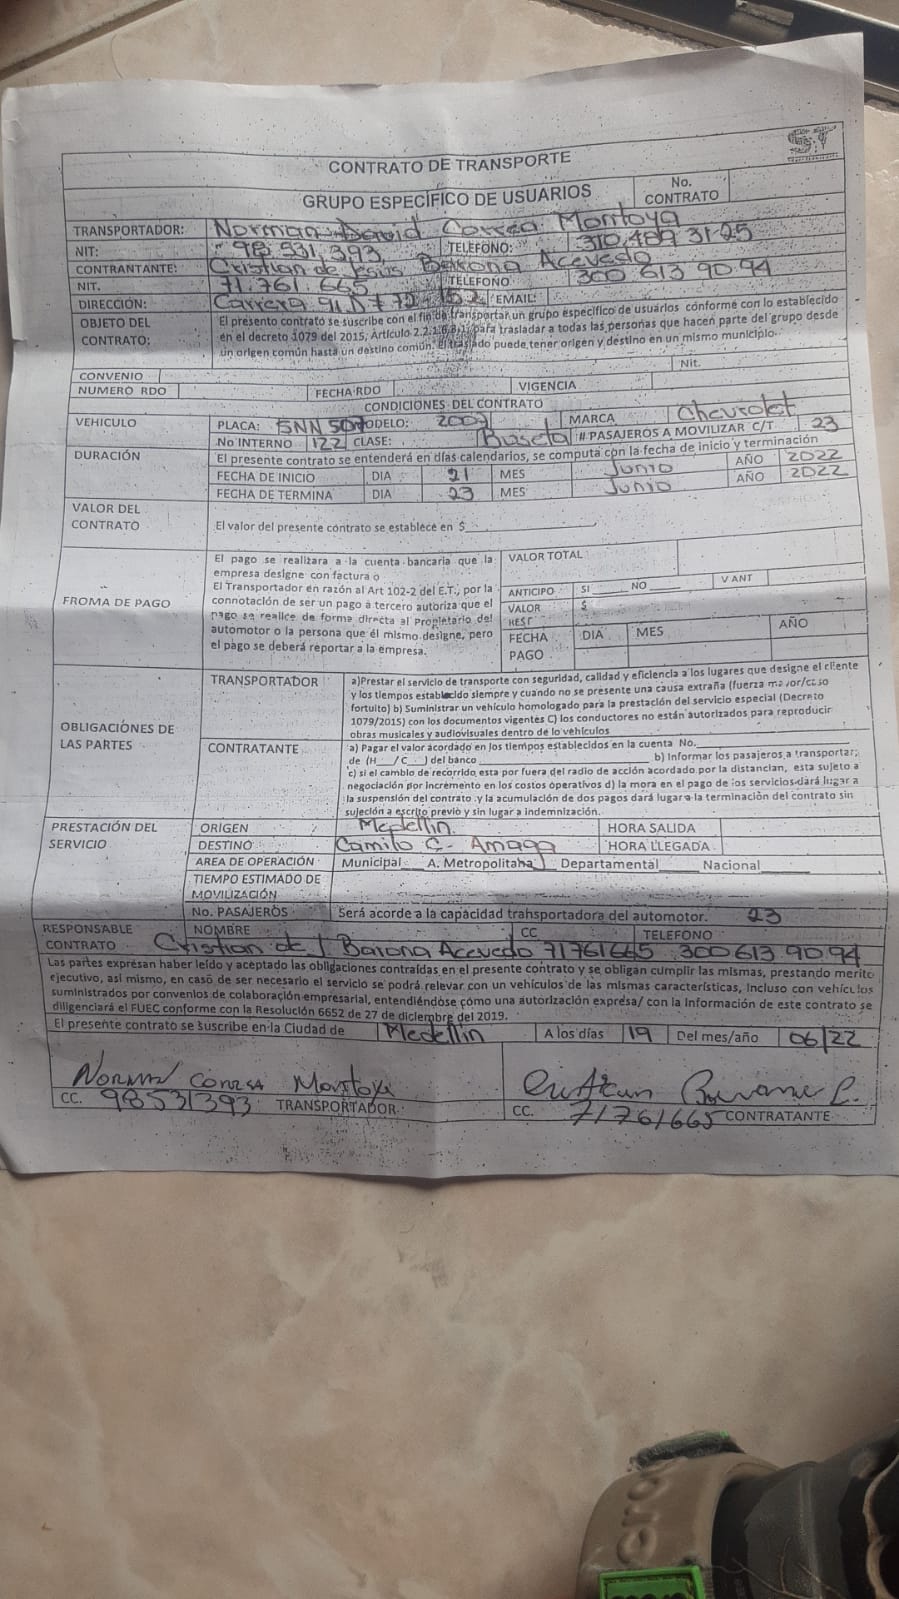 ST
CONTRATO DE TRANSPORTE
GRUPO ESPECÍFICO DE USUARIOS No. CONTRATO
TRANSPORTADOR: Norman David Correa Montoya
NIT: 98.531.393 TELEFONO: 310.489 31 25
CONTRANTANTE: Cristian de Jesus Barona Acevedo
NIT. 71.761.665 TELEFONO 300 613 90 94
DIRECCIÓN: Carrera 91 D # 72 EMAIL:
OBJETO DEL CONTRATO: El presento contrato se suscribe con el fin de transportar un grupo especifico de usuarios conforme con lo establecido
en el decreto 1079 del 2015, Artículo 2.2.1.6.8.1, para trasladar a todas las personas que hacen parte del grupo desde
un origen común hasta un destino común. El traslado puede tener origen y destino en un mismo municipio.
CONVENIO Nit.
NUMERO RDO FECHA RDO VIGENCIA
CONDICIONES DEL CONTRATO
VEHICULO PLACA: SNN 507 MODELO: 2007 MARCA Chevrolet
No INTERNO 122 CLASE: Buseta # PASAJEROS A MOVILIZAR C/T 23
DURACIÓN El presente contrato se entenderá en días calendarios, se computa con la fecha de inicio y terminación
FECHA DE INICIO DIA 21 MES Junio AÑO 2022
FECHA DE TERMINA DIA 23 MES Junio AÑO 2022
VALOR DEL CONTRATO El valor del presente contrato se establece en $
FROMA DE PAGO El pago se realizara a la cuenta bancaria que la
empresa designe con factura o
El Transportador en razón al Art 102-2 del E.T., por la
connotación de ser un pago a tercero autoriza que el
pago se realice de forma directa al Propietario del
automotor o la persona que él mismo designe, pero
el pago se deberá reportar a la empresa.
VALOR TOTAL
ANTICIPO SI NO V ANT
VALOR REST $
FECHA PAGO DIA MES AÑO
OBLIGACIÓNES DE LAS PARTES
TRANSPORTADOR a)Prestar el servicio de transporte con seguridad, calidad y eficiencia a los lugares que designe el cliente
y los tiempos establecido siempre y cuando no se presente una causa extraña (fuerza mayor/caso
fortuito) b) Suministrar un vehículo homologado para la prestación del servicio especial (Decreto
1079/2015) con los documentos vigentes C) los conductores no están autorizados para reproducir
obras musicales y audiovisuales dentro de lo vehículos
CONTRATANTE a) Pagar el valor acordado en los tiempos establecidos en la cuenta No.
de (H___/C___) del banco b) Informar los pasajeros a transportar;
c) si el cambio de recorrido esta por fuera del radio de acción acordado por la distancian, esta sujeto a
negociación por incremento en los costos operativos d) la mora en el pago de los servicios dará lugar a
la suspensión del contrato y la acumulación de dos pagos dará lugar a la terminación del contrato sin
sujeción a escrito previo y sin lugar a indemnización.
PRESTACIÓN DEL SERVICIO ORIGEN Medellin HORA SALIDA
DESTINO Camilo C - Amaga HORA LLEGADA
AREA DE OPERACIÓN Municipal A. Metropolitana Departamental Nacional
TIEMPO ESTIMADO DE MOVILIZACIÓN
No. PASAJEROS Será acorde a la capacidad transportadora del automotor. 23
RESPONSABLE CONTRATO NOMBRE CC TELEFONO
Cristian de J Barona Acevedo 71761665 300 613 90 94
Las partes expresan haber leído y aceptado las obligaciones contraídas en el presente contrato y se obligan cumplir las mismas, prestando merito
ejecutivo, así mismo, en caso de ser necesario el servicio se podrá relevar con un vehículos de las mismas características, incluso con vehículos
suministrados por convenios de colaboración empresarial, entendiéndose como una autorización expresa/ con la información de este contrato se
diligenciará el FUEC conforme con la Resolución 6652 de 27 de diciembre del 2019.
El presente contrato se suscribe en la Ciudad de Medellin A los días 19 Del mes/año 06/22
Norman Correa Montoya
CC. 98531393 TRANSPORTADOR
CC. 71761665 CONTRATANTE